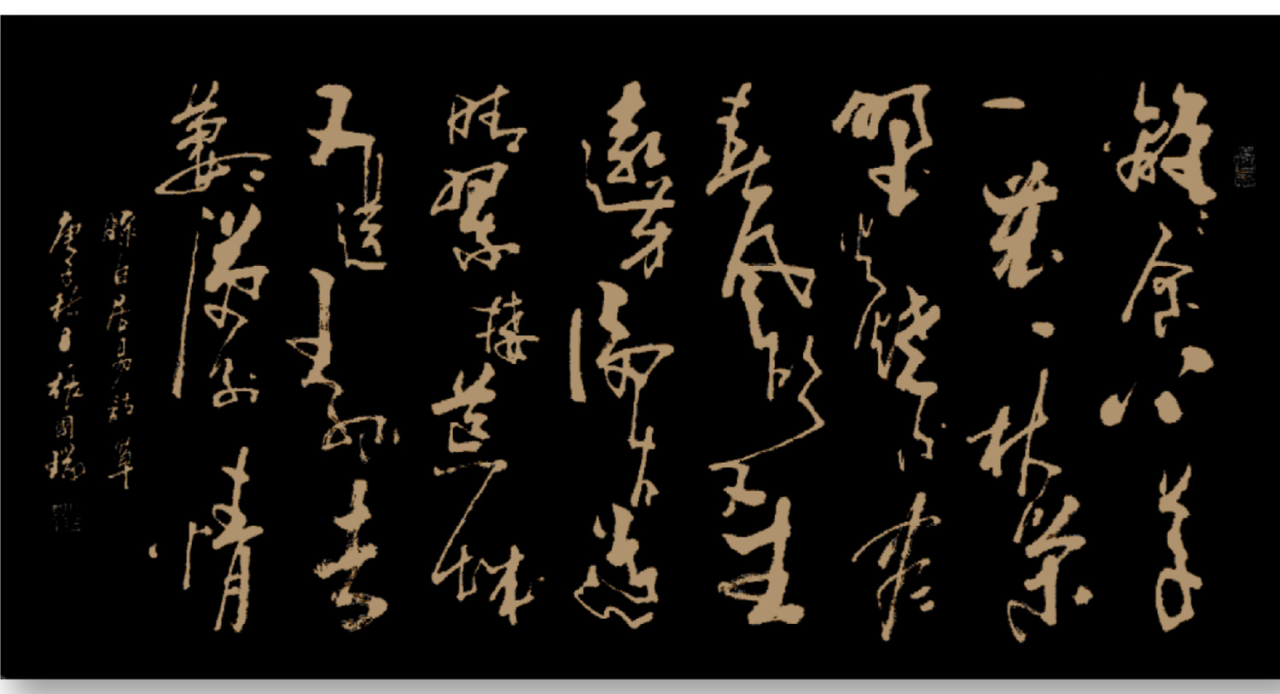 離離原上草
一歲一枯榮
野火燒不盡
春風吹又生
遠芳侵古道
晴翠接荒城
又送王孫去
萋萋滿別情
錄白居易詩草
庚子秋日